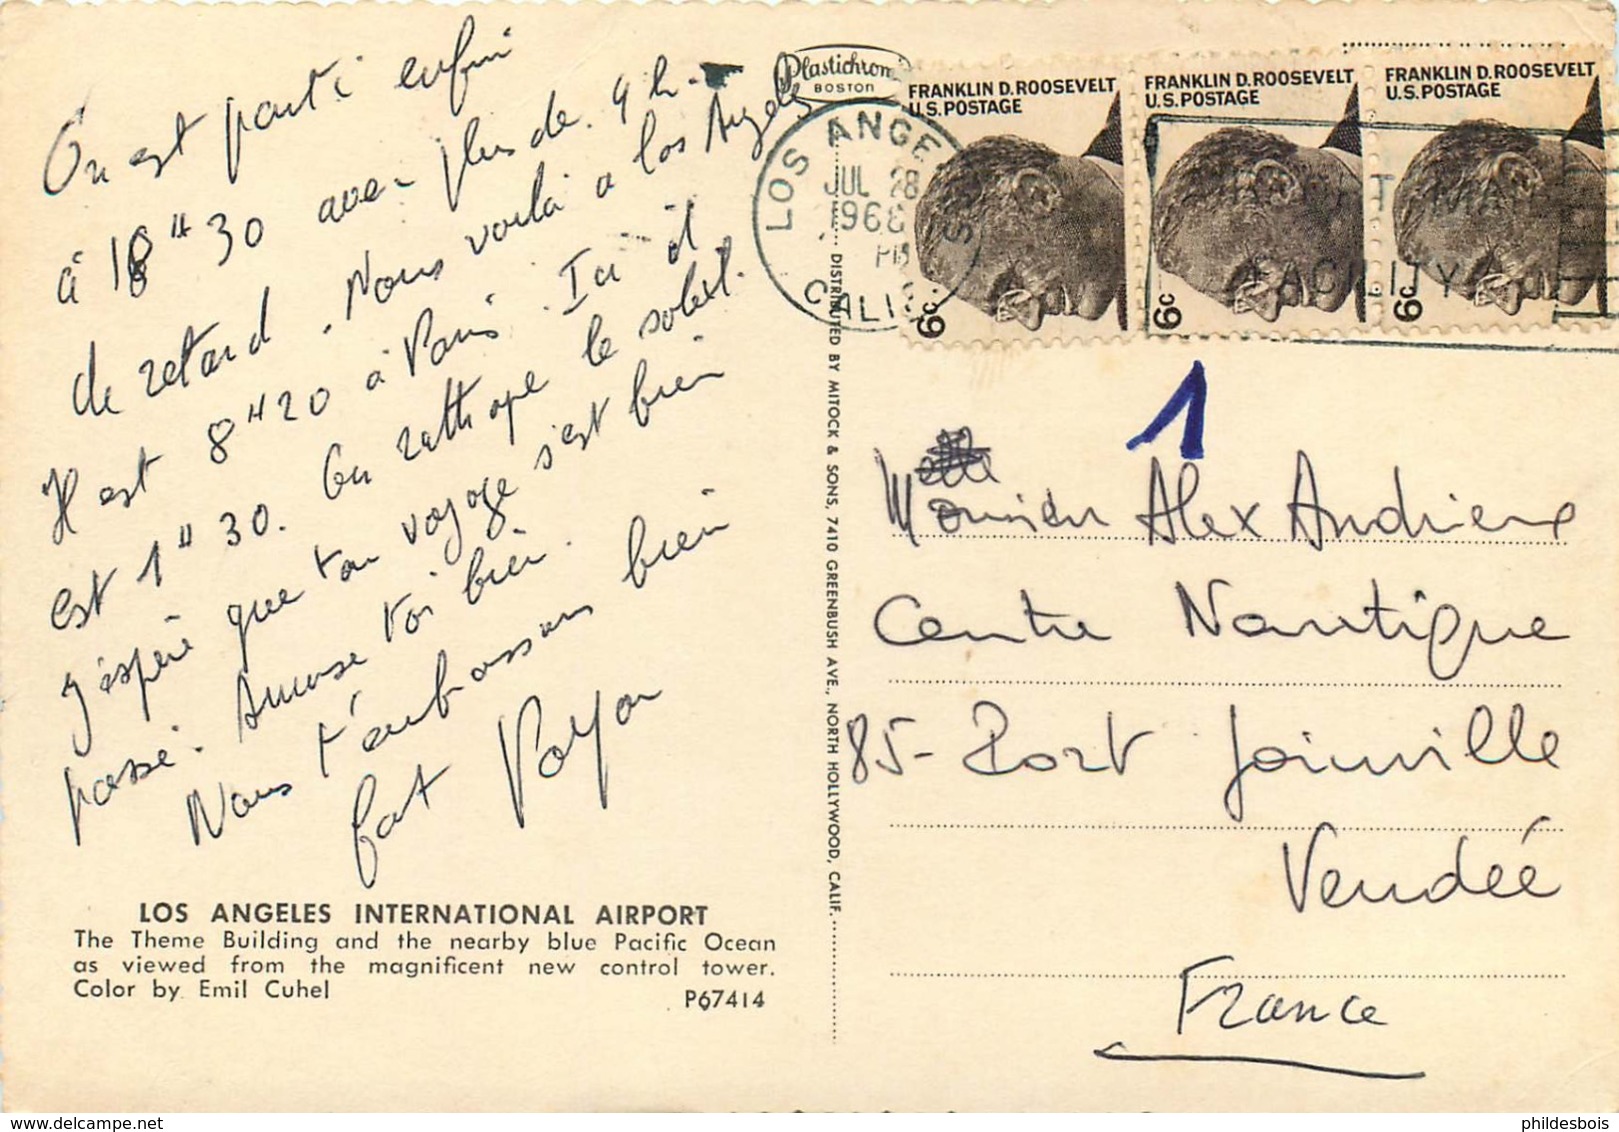 On est parti enfin
à 18H30 avec plus de 4 h.
de retard. Nous voilà à Los Angeles
Il est 8H20 à Paris. Ici il
est 1H30. On rattrape le soleil.
J'espère que ton voyage s'est bien
passé. Amuse toi bien.
Nous t'embrassons bien
fort
LOS ANGELES INTERNATIONAL AIRPORT
The Theme Building and the nearby blue Pacific Ocean
as viewed from the magnificent new control tower.
Color by Emil Cuhel P67414
Plastichrome
BOSTON
DISTRIBUTED BY MITOCK & SONS, 7410 GREENBUSH AVE., NORTH HOLLYWOOD, CALIF.
LOS ANGELES
JUL 28
PM
CALIF
FRANKLIN D. ROOSEVELT
U.S. POSTAGE
6c
FRANKLIN D. ROOSEVELT
U.S. POSTAGE
6c
FRANKLIN D. ROOSEVELT
U.S. POSTAGE
6c
FACILITY
1
Monsieur Alex Andrieux
Centre Nautique
85- Port Joinville
Vendée
France
phildesbois